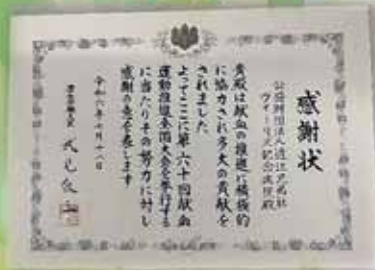 感謝状
公益財団法人近江兄弟社
ヴォーリズ記念病院殿
貴殿は献血の推進に積極的
に協力され多大の貢献を
されました
よってここに第六十回献血
運動推進全国大会を挙行する
に当たりその努力に対し
感謝の意を表します
令和六年七月十八日
厚生労働大臣 武見敬三